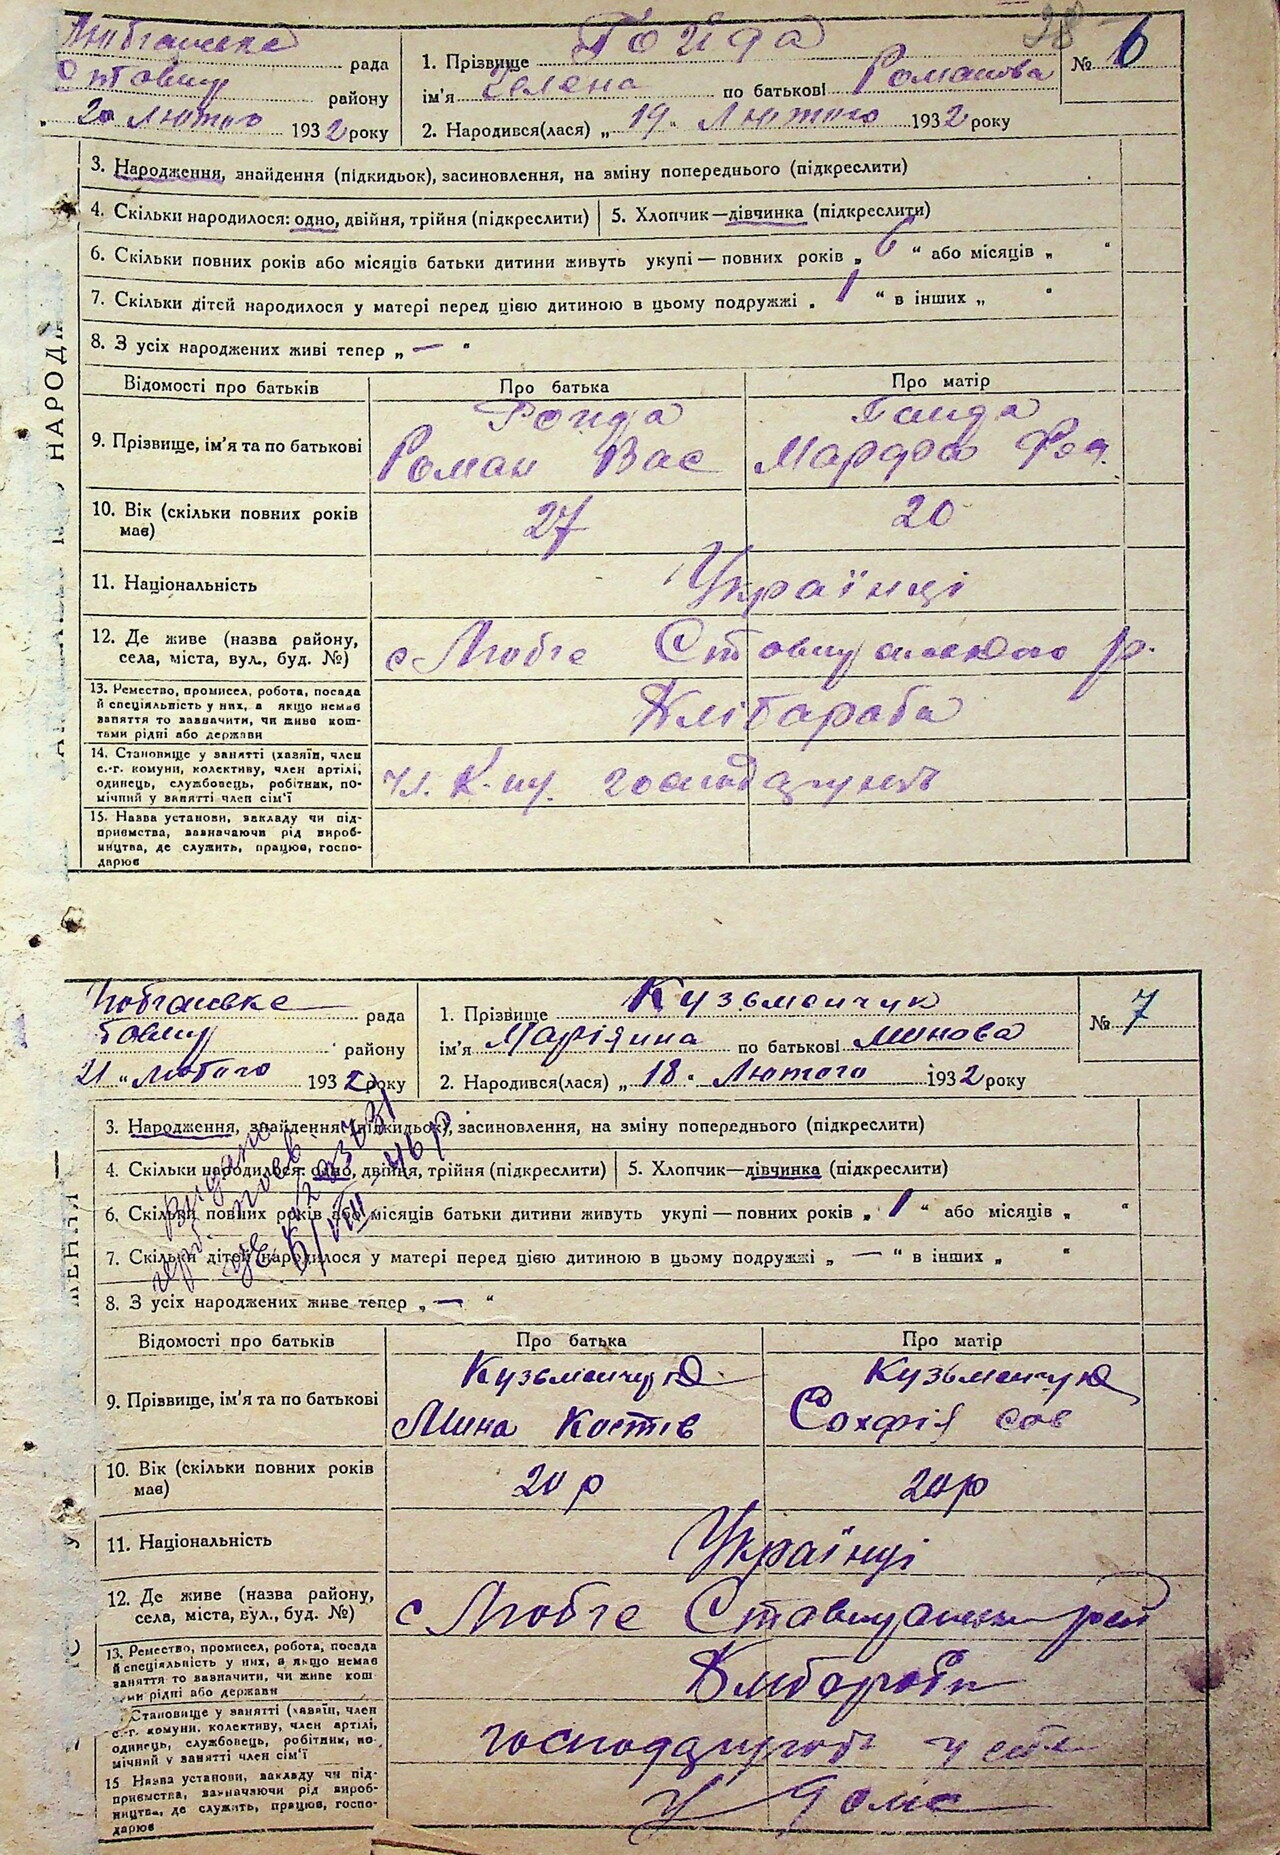 28
рада 1. Прізвище Гойда № 6
району ім'я Гелена по батькові Романова
„ 20 Лютого 1932 року 2. Народився(лася) „ 19 „ Лютого 1932 року
3. Народження, знайдення (підкидьок), засиновлення, на зміну попереднього (підкреслити)
4. Скільки народилося: одно, двійня, трійня (підкреслити) 5. Хлопчик—дівчинка (підкреслити)
6. Скільки повних років або місяців батьки дитини живуть укупі — повних років „ 6 “ або місяців „ “
7. Скільки дітей народилося у матері перед цією дитиною в цьому подружжі „ 1 “ в інших „ “
8. З усіх народжених живі тепер „ — “
Відомості про батьків Про батька Про матір
9. Прізвище, ім'я та по батькові Гойда Гойда
Роман Вас Марфа Фед.
10. Вік (скільки повних років 27 20
має)
11. Національність Українці
12. Де живе (назва району, с Любге Ставищанського р.
села, міста, вул., буд. №)
13. Ремество, промисел, робота, посада Хлібароба
й спеціяльність у них, а якщо немає
заняття то зазначити, чи живе кош-
тами рідні або держави
14. Становище у занятті (хазяїн, член чл. К.
с.-г. комуни, колективу, член артілі,
одинець, службовець, робітник, по-
мічний у занятті член сім'ї
15. Назва установи, закладу чи під-
приємства, зазначаючи рід вироб-
ництва, де служить, працює, госпо-
дарює
рада 1. Прізвище Кузьменчук № 7
району ім'я Маріяна по батькові Минова
21 „ Лютого 1932 року 2. Народився(лася) „ 18 „ Лютого 1932 року
3. Народження, знайдення (підкидьок), засиновлення, на зміну попереднього (підкреслити)
4. Скільки народилося: одно, двійня, трійня (підкреслити) 5. Хлопчик—дівчинка (підкреслити)
6. Скільки повних років або місяців батьки дитини живуть укупі — повних років „ 1 “ або місяців „ “
7. Скільки дітей народилося у матері перед цією дитиною в цьому подружжі „ — “ в інших „ “
8. З усіх народжених живе тепер „ — “
Видано
Відомості про батьків Про батька Про матір
9. Прізвище, ім'я та по батькові Кузьменчук Кузьменчук
Мина Костів Сохфія Сав
10. Вік (скільки повних років 20 р 20 р
має)
11. Національність Українці
12. Де живе (назва району, с Любге
села, міста, вул., буд. №)
13. Ремество, промисел, робота, посада Хлібароби
й спеціяльність у них, а якщо немає
заняття то зазначити, чи живе кош-
тами рідні або держави
Становище у занятті (хазяїн, член
с.-г. комуни, колективу, член артілі,
одинець, службовець, робітник, по-
мічний у занятті член сім'ї
15 Назва установи, закладу чи під- у дома
приємства, зазначаючи рід вироб-
ництва, де служить, працює, госпо-
дарює